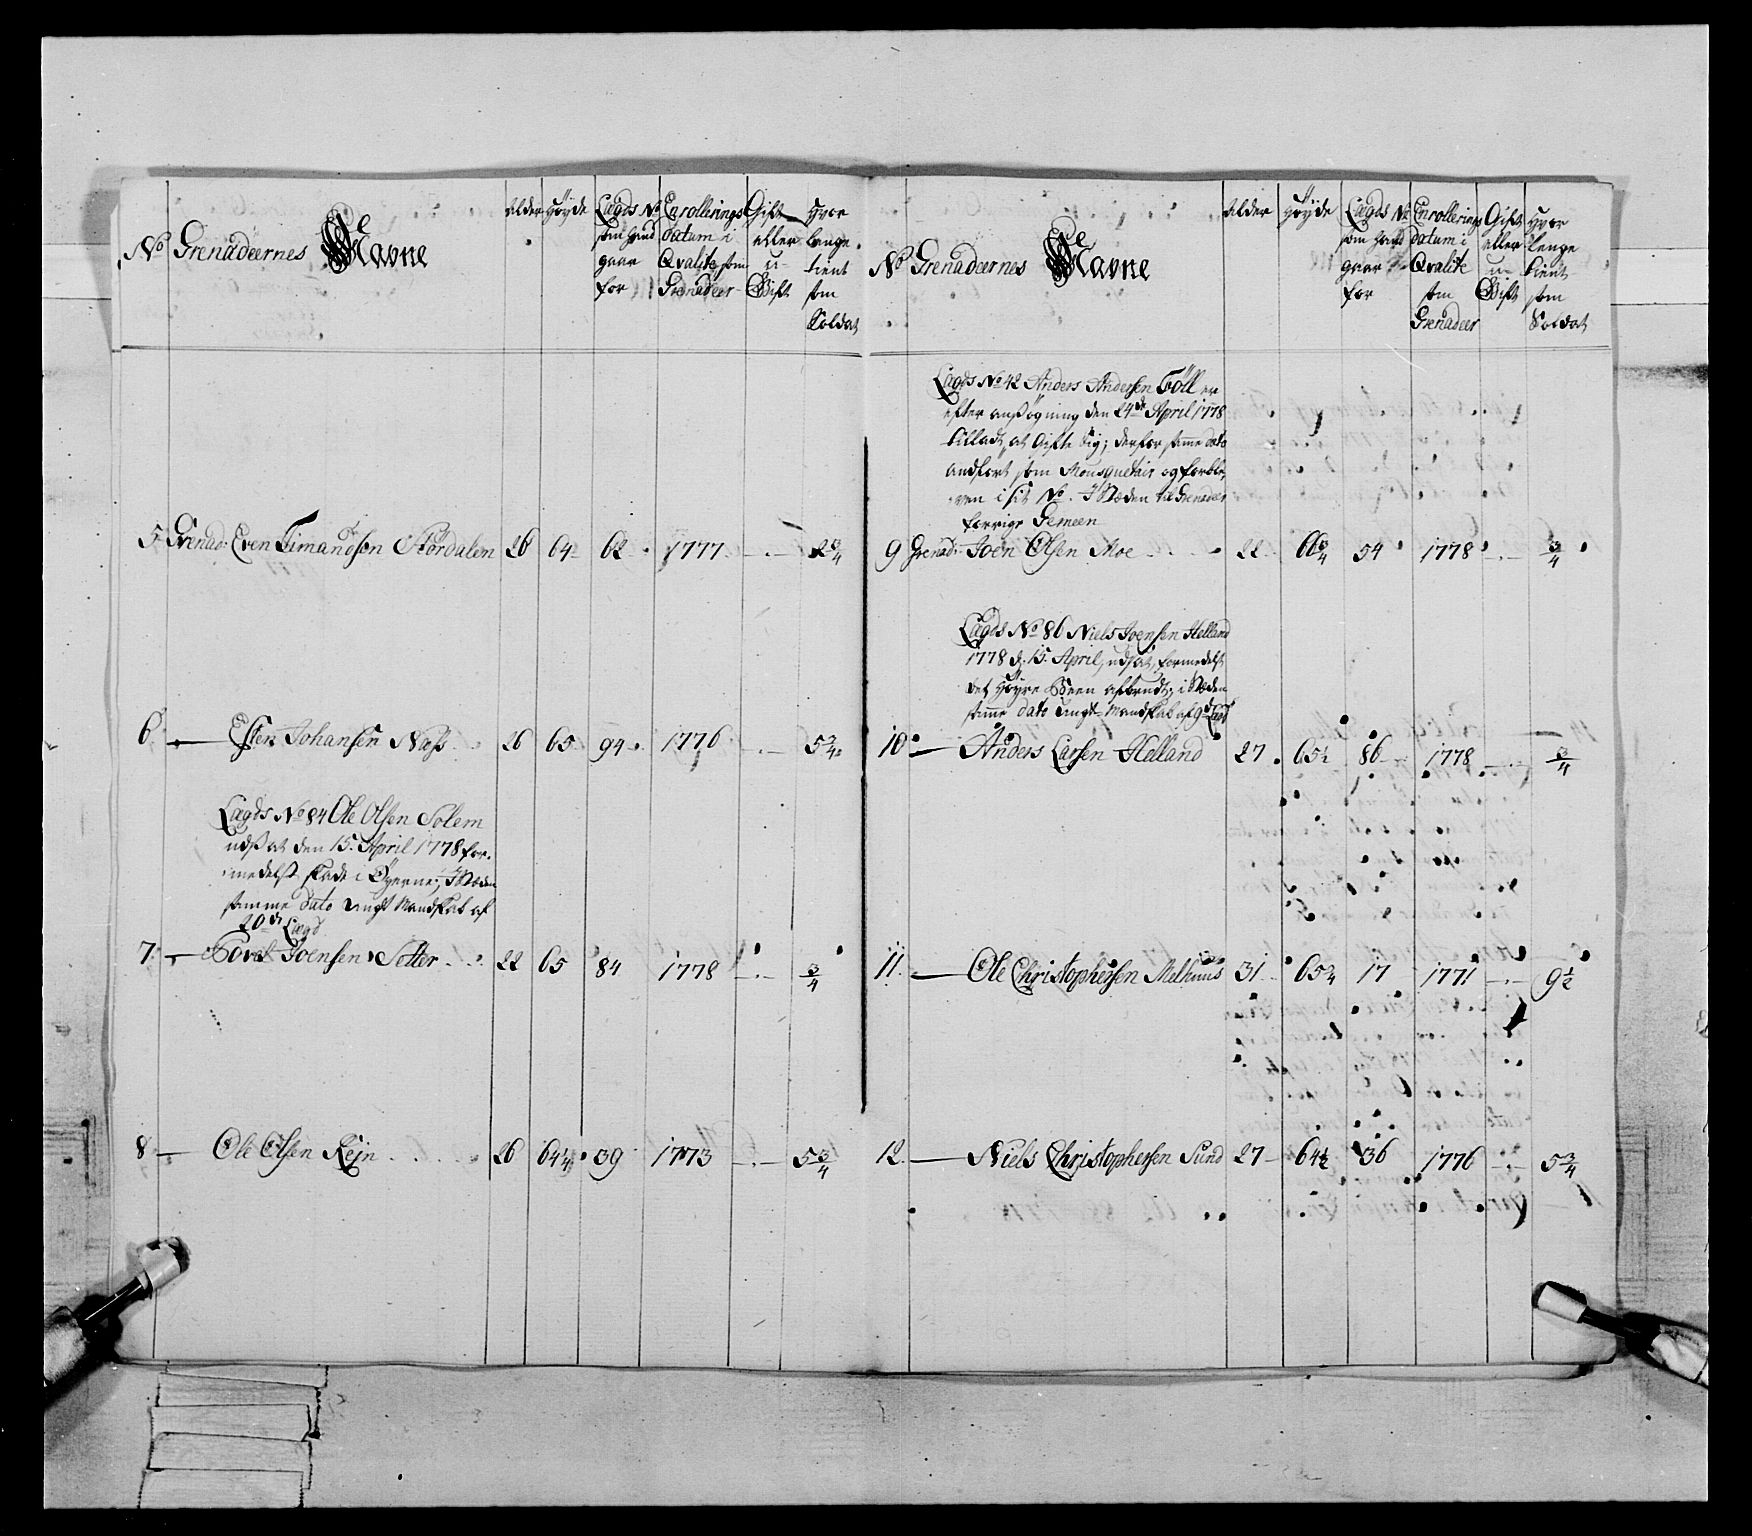 No Grenadeernes Nafne
Alder
Høyde
Lægds No
som hand
gaar
for
Enrollerings
datum i
Qvalite som
Grenadeer
Gift
eller
u-
Gift
Hvor
lenge
tient
som
Soldat
5 Grenad: Even Simandsøn Størdalen 26 64 62 1777 - 2 3/4
6 — Esten Johansen Næss 26 65 94 1776 - 5 3/4
Lægds No 84 Ole Olsen Solem
udsat den 15 April 1778 for-
medelst skade i Øyerne; I Stæden
samme dato Ungt Mandskab af
20de Lægd
7 — Joensen Setter 22 65 84 1778 - 3/4
8 — Ole Olsen Rejn 26 64 1/4 39 1773 - 5 3/4
No Grenadeernes Nafne
Alder
Høyde
Lægds No
som hand
gaar
for
Enrollerings
datum i
Qvalite
som
Grenadeer
Gift
eller
u-
Gift
Hvor
lenge
tient
som
Soldat
Lægds No 42 Anders AndersenFöll er
efter ansøgning den 24de April 1778
tilladt, at Gifte sig; derfor samme dato
andført som Mousquetair og forble-
ven i sit No. I Stæden til Grenadeer
forrige Gemeen
9 Grenad: Joen Olsen Moe 22 66 3/4 54 1778 - 3/4
Lægds No 86 Niels Joensen Helland
1778 d. 15 April, udsat, formedelst
det Høyre Been afbrudt; i Stæden
samme dato Ungt Mandskab af 9de Lægd
10 — Anders Larsen Helland 27 65 1/2 86 1778 - 3/4
11 — Ole Christophersen Melhuus 31 65 3/4 17 1771 - 9 1/2
12 — Niels Christophersen Sund 27 64 1/2 36 1776 - 5 3/4